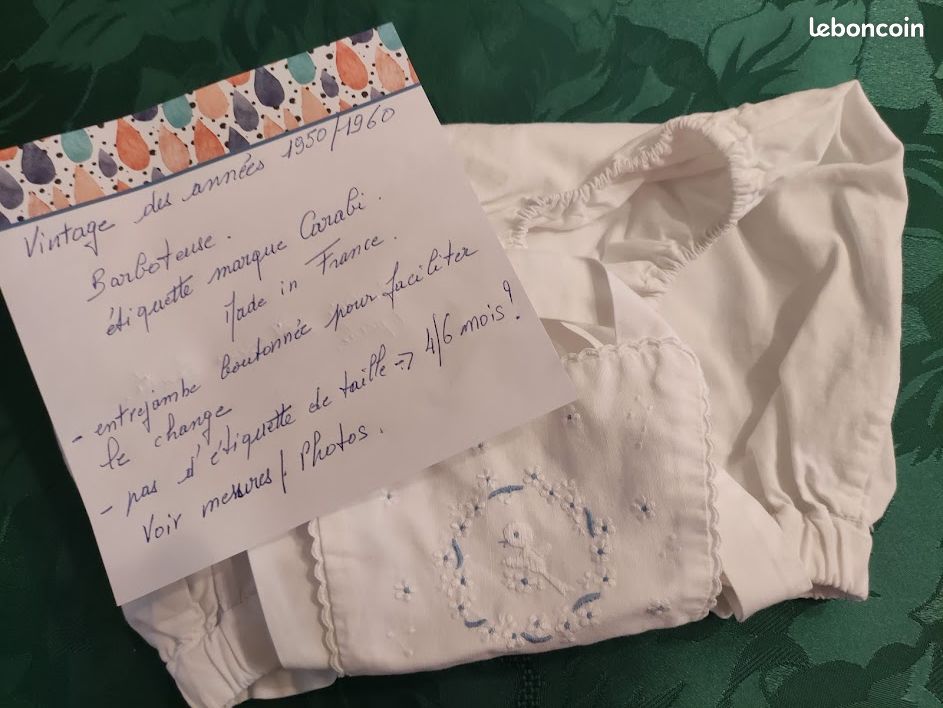 leboncoin
Vintage des années 1950/1960
Barboteuse.
étiquette marque Carabi.
Made in France.
- entrejambe boutonnée pour faciliter
le change
- pas d'étiquette de taille => 4/6 mois?
Voir mesures/Photos.